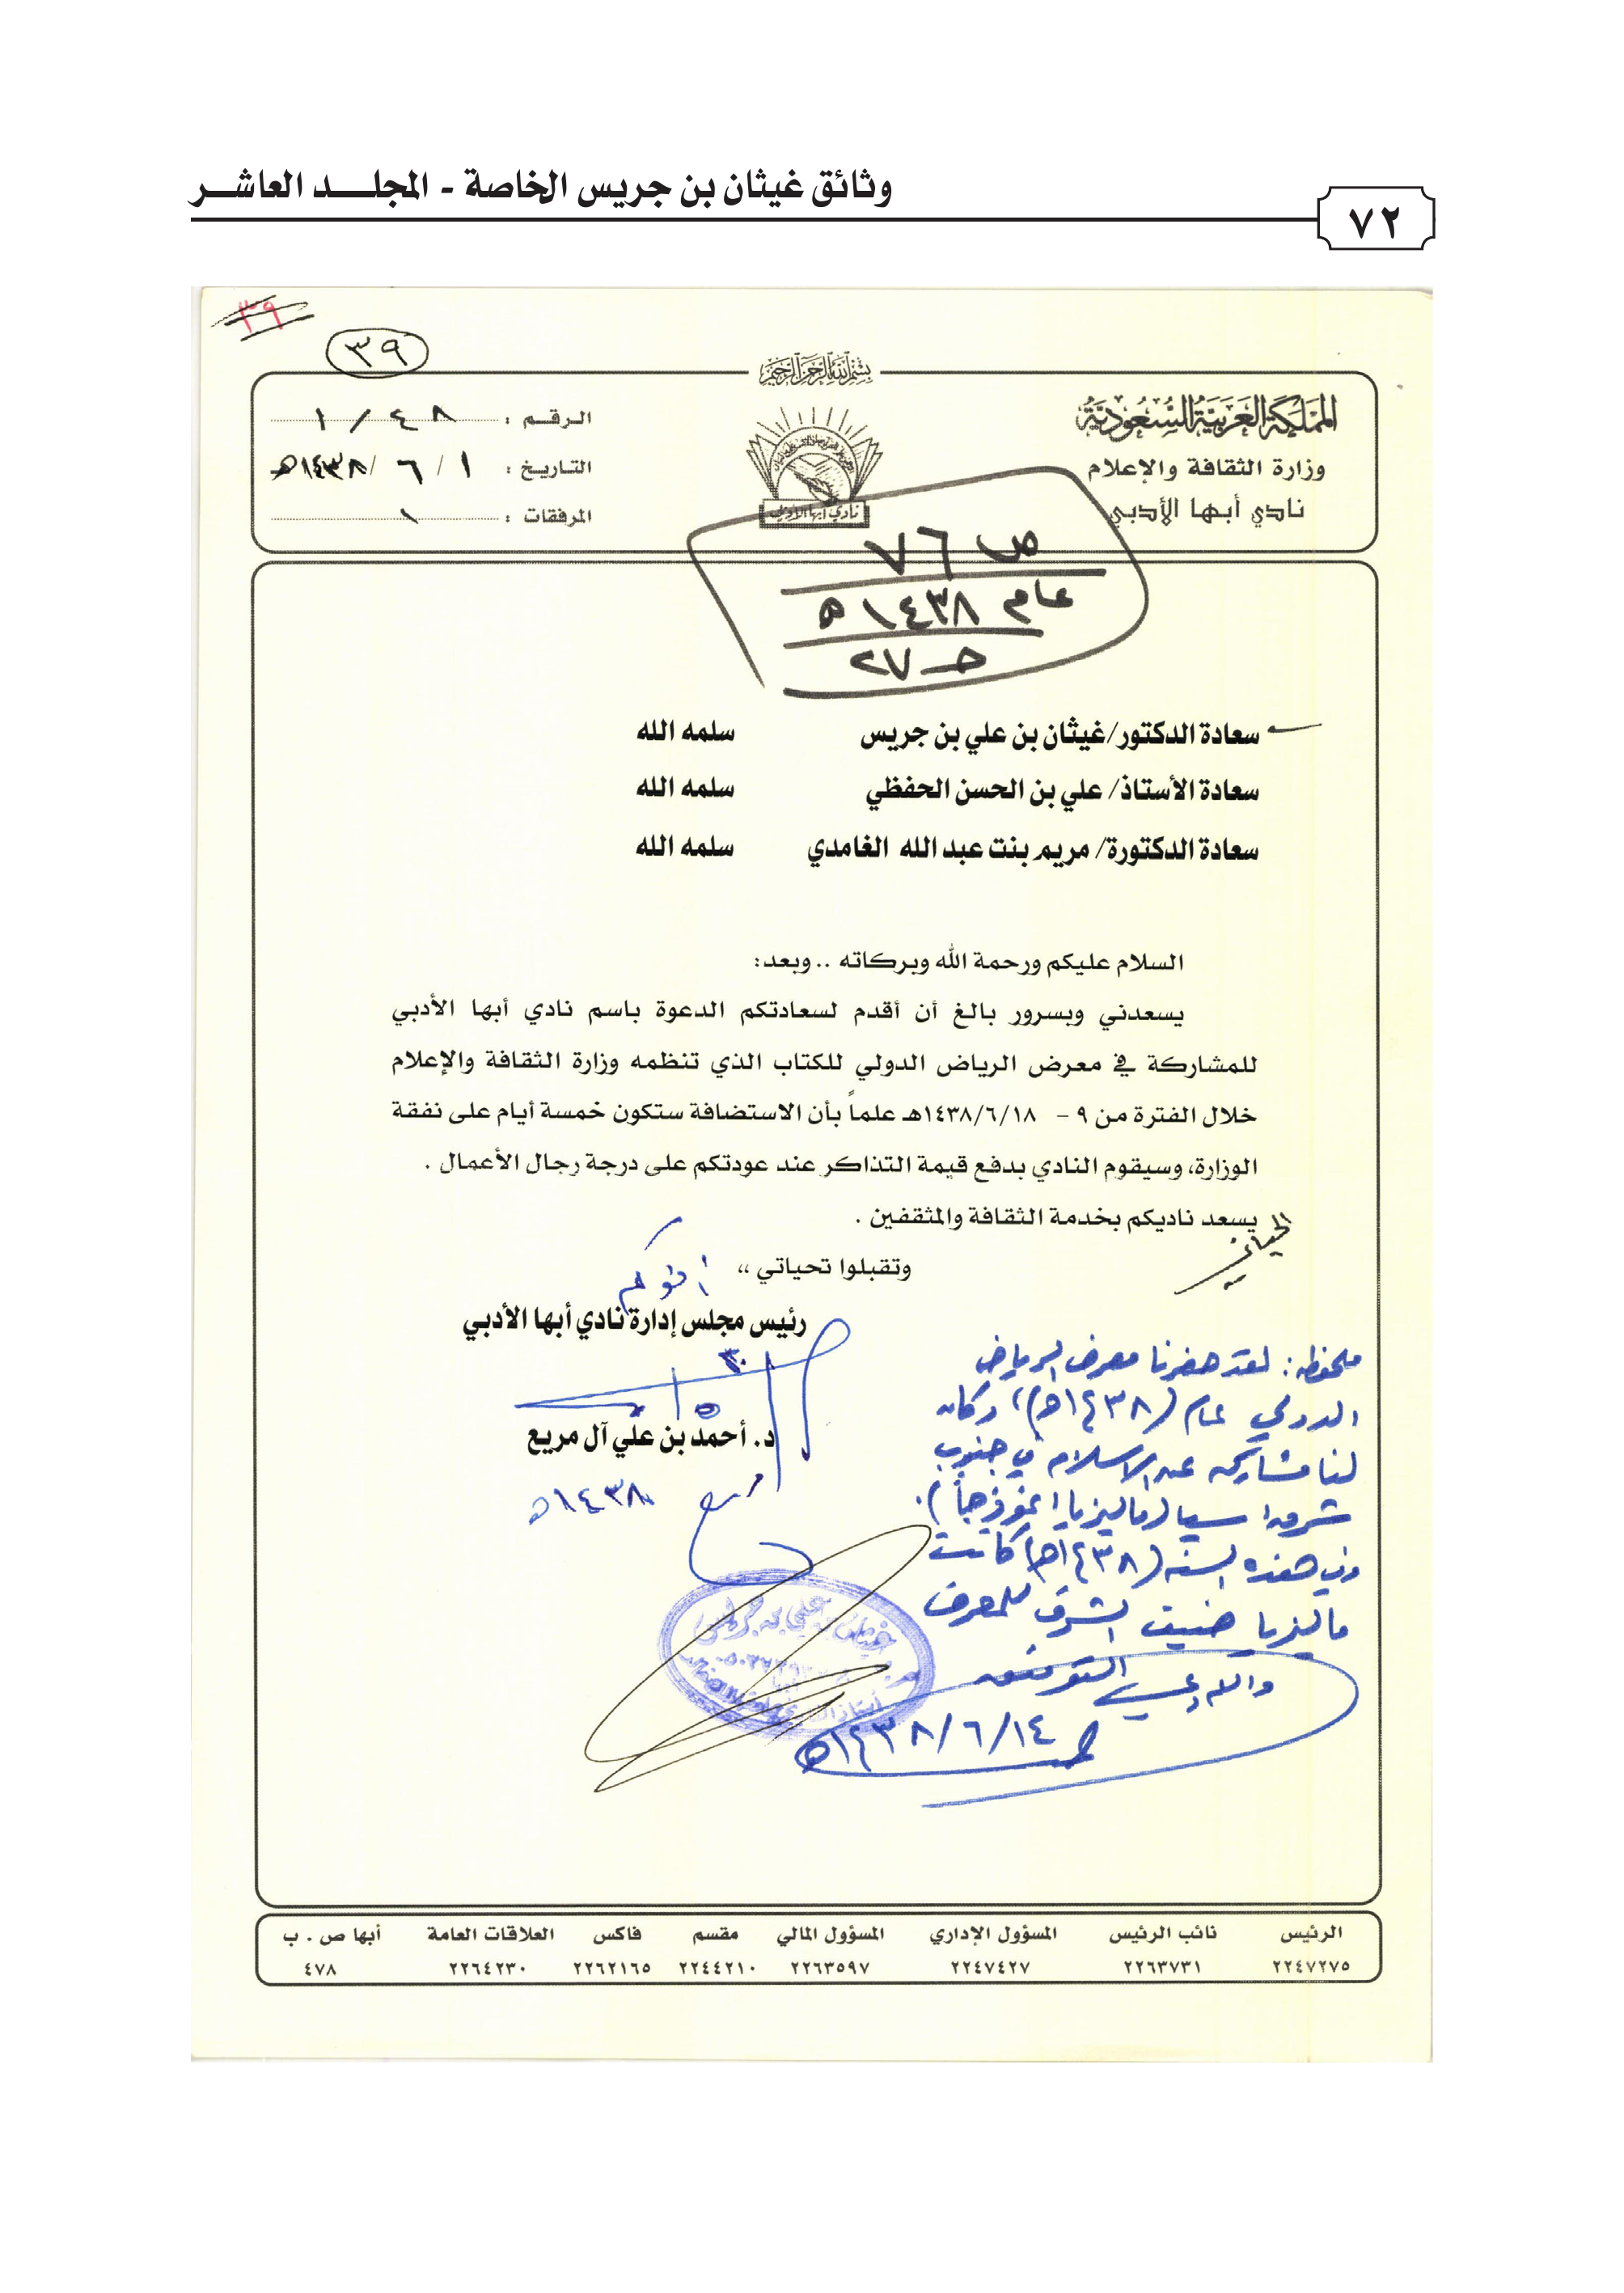 وثائق غيثان بن جريس الخاصة - المجلـــد العاشـــر
٧٢
٣٩
٣٩
بسم الله الرحمن الرحيم
المملكة العربية السعودية
وزارة الثقافة والإعلام
نادي أبها الأدبي
نادي أبها الأدبي
الرقم : ١/٤٨
التاريخ : ١/ ٦ /١٤٣٨هـ
المرفقات : ١
ص ٧٦
عام ١٤٣٨ هـ
حـ ٢٧
سعادة الدكتور/غيثان بن علي بن جريس سلمه الله
سعادة الأستاذ/ علي بن الحسن الحفظي سلمه الله
سعادة الدكتورة/ مريم بنت عبد الله الغامدي سلمه الله
السلام عليكم ورحمة الله وبركاته .. وبعد:
يسعدني وبسرور بالغ أن أقدم لسعادتكم الدعوة باسم نادي أبها الأدبي
للمشاركة في معرض الرياض الدولي للكتاب الذي تنظمه وزارة الثقافة والإعلام
خلال الفترة من ٩ - ١٤٣٨/٦/١٨هـ علماً بأن الاستضافة ستكون خمسة أيام على نفقة
الوزارة، وسيقوم النادي بدفع قيمة التذاكر عند عودتكم على درجة رجال الأعمال .
يسعد ناديكم بخدمة الثقافة والمثقفين .
وتقبلوا تحياتي ،،
أخوكم
رئيس مجلس إدارة نادي أبها الأدبي
د. أحمد بن علي آل مريع
١٤٣٨هـ
ملحوظة : لقد حضرنا معرض الرياض
الدولي عام (١٤٣٨هـ)، وكان
لنا مشاركة عن الاسلام في جنوب
شرق اسيا (ماليزيا انموذجاً).
وفي هذه السنة (١٤٣٨هـ) كانت
ماليزيا ضيف الشرف للمعرض
والله ولي التوفيق
١٤٣٨/٦/١٤هـ
الرئيس نائب الرئيس المسؤول الإداري المسؤول المالي مقسم فاكس العلاقات العامة أبها ص . ب
٢٢٤٧٢٧٥ ٢٢٦٣٧٣١ ٢٢٤٧٤٢٧ ٢٢٦٣٥٩٧ ٢٢٤٤٢١٠ ٢٢٦٢١٦٥ ٢٢٦٤٢٣٠ ٤٧٨